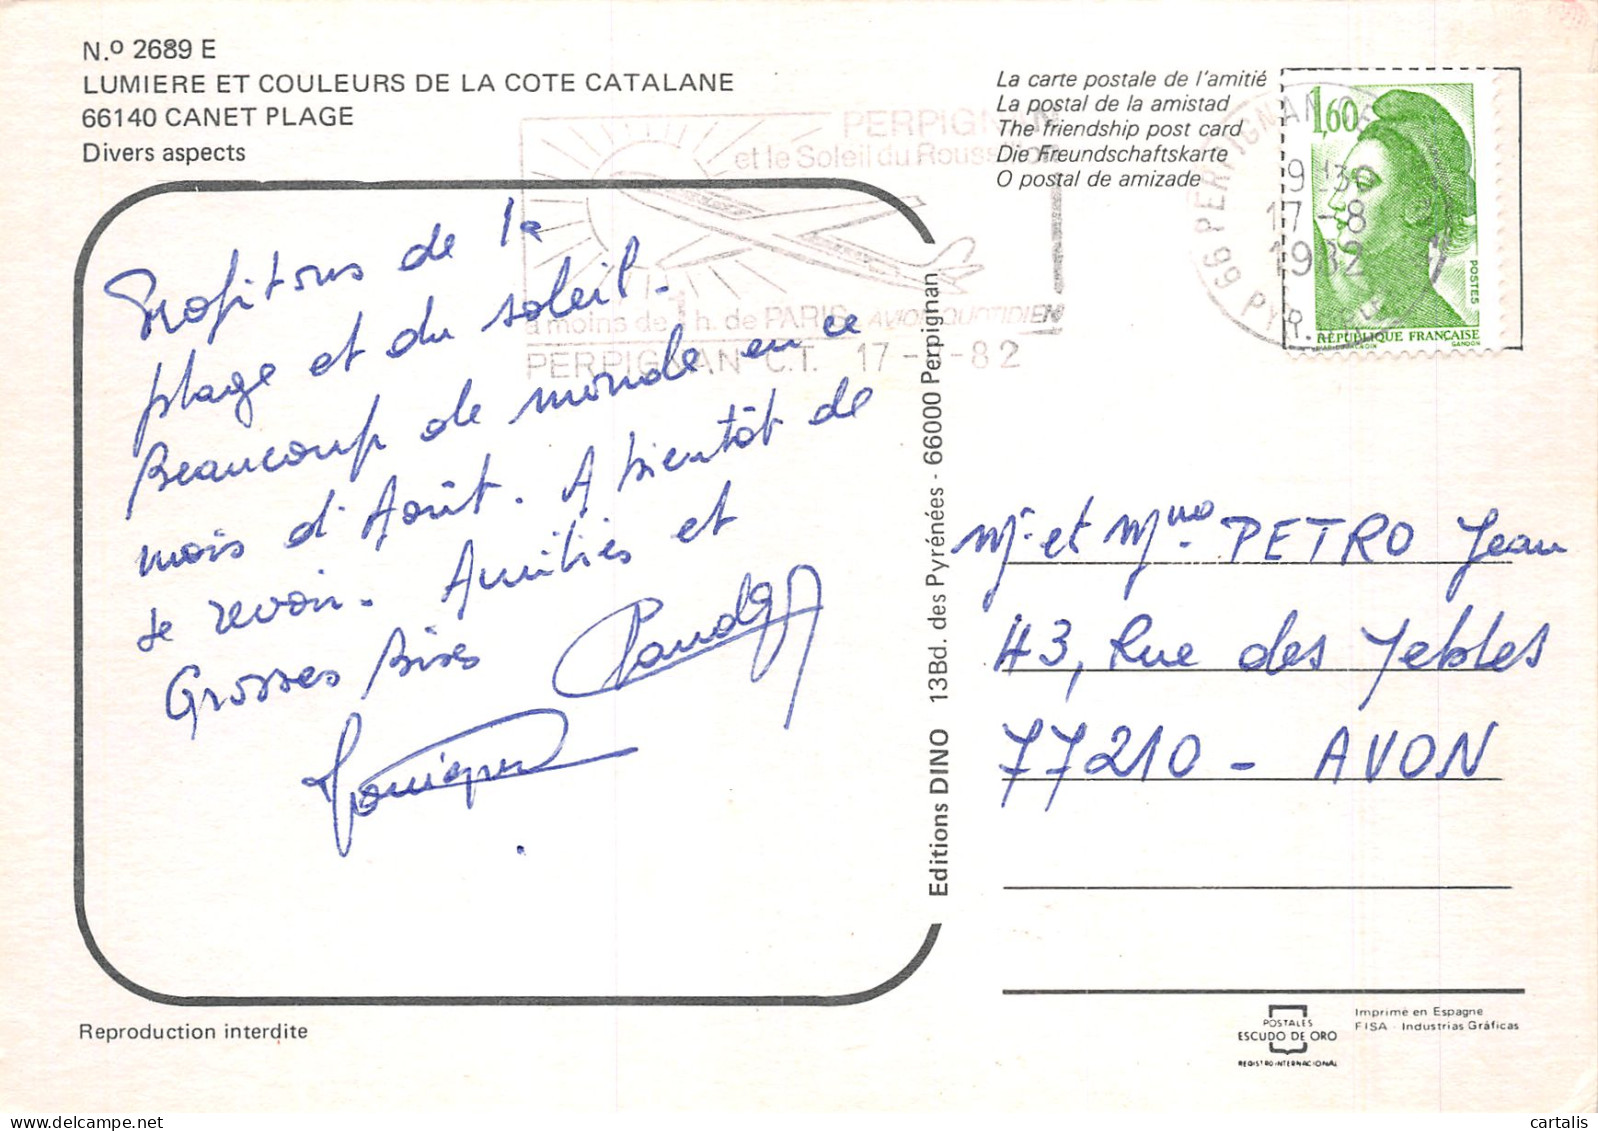 N.º 2689 E
LUMIERE ET COULEURS DE LA COTE CATALANE
66140 CANET PLAGE
Divers aspects
Profitons de la
plage et du soleil.
Beaucoup de monde en ce
mois d'Août. A bientôt de
se revoir. Amitiés et
Grosses Bises
PERPIGNAN
et le Soleil du Roussillon
à moins de 1 h. de PARIS AVION QUOTIDIEN
PERPIGNAN C.T. 17-8-82
La carte postale de l'amitié
La postal de la amistad
The friendship post card
Die Freundschaftskarte
O postal de amizade
PERPIGNAN
66 PYR.
9H30
17-8
1982
1,60
POSTES
RÉPUBLIQUE FRANÇAISE
GANDON
Editions DINO 13Bd. des Pyrénées - 66000 Perpignan
Mr et Mme PETRO Jean
43, Rue des Yebles
77210 - AVON
Reproduction interdite
POSTALES
ESCUDO DE ORO
REGISTRO INTERNACIONAL
Imprimé en Espagne
FISA - Industrias Gráficas
cartalis